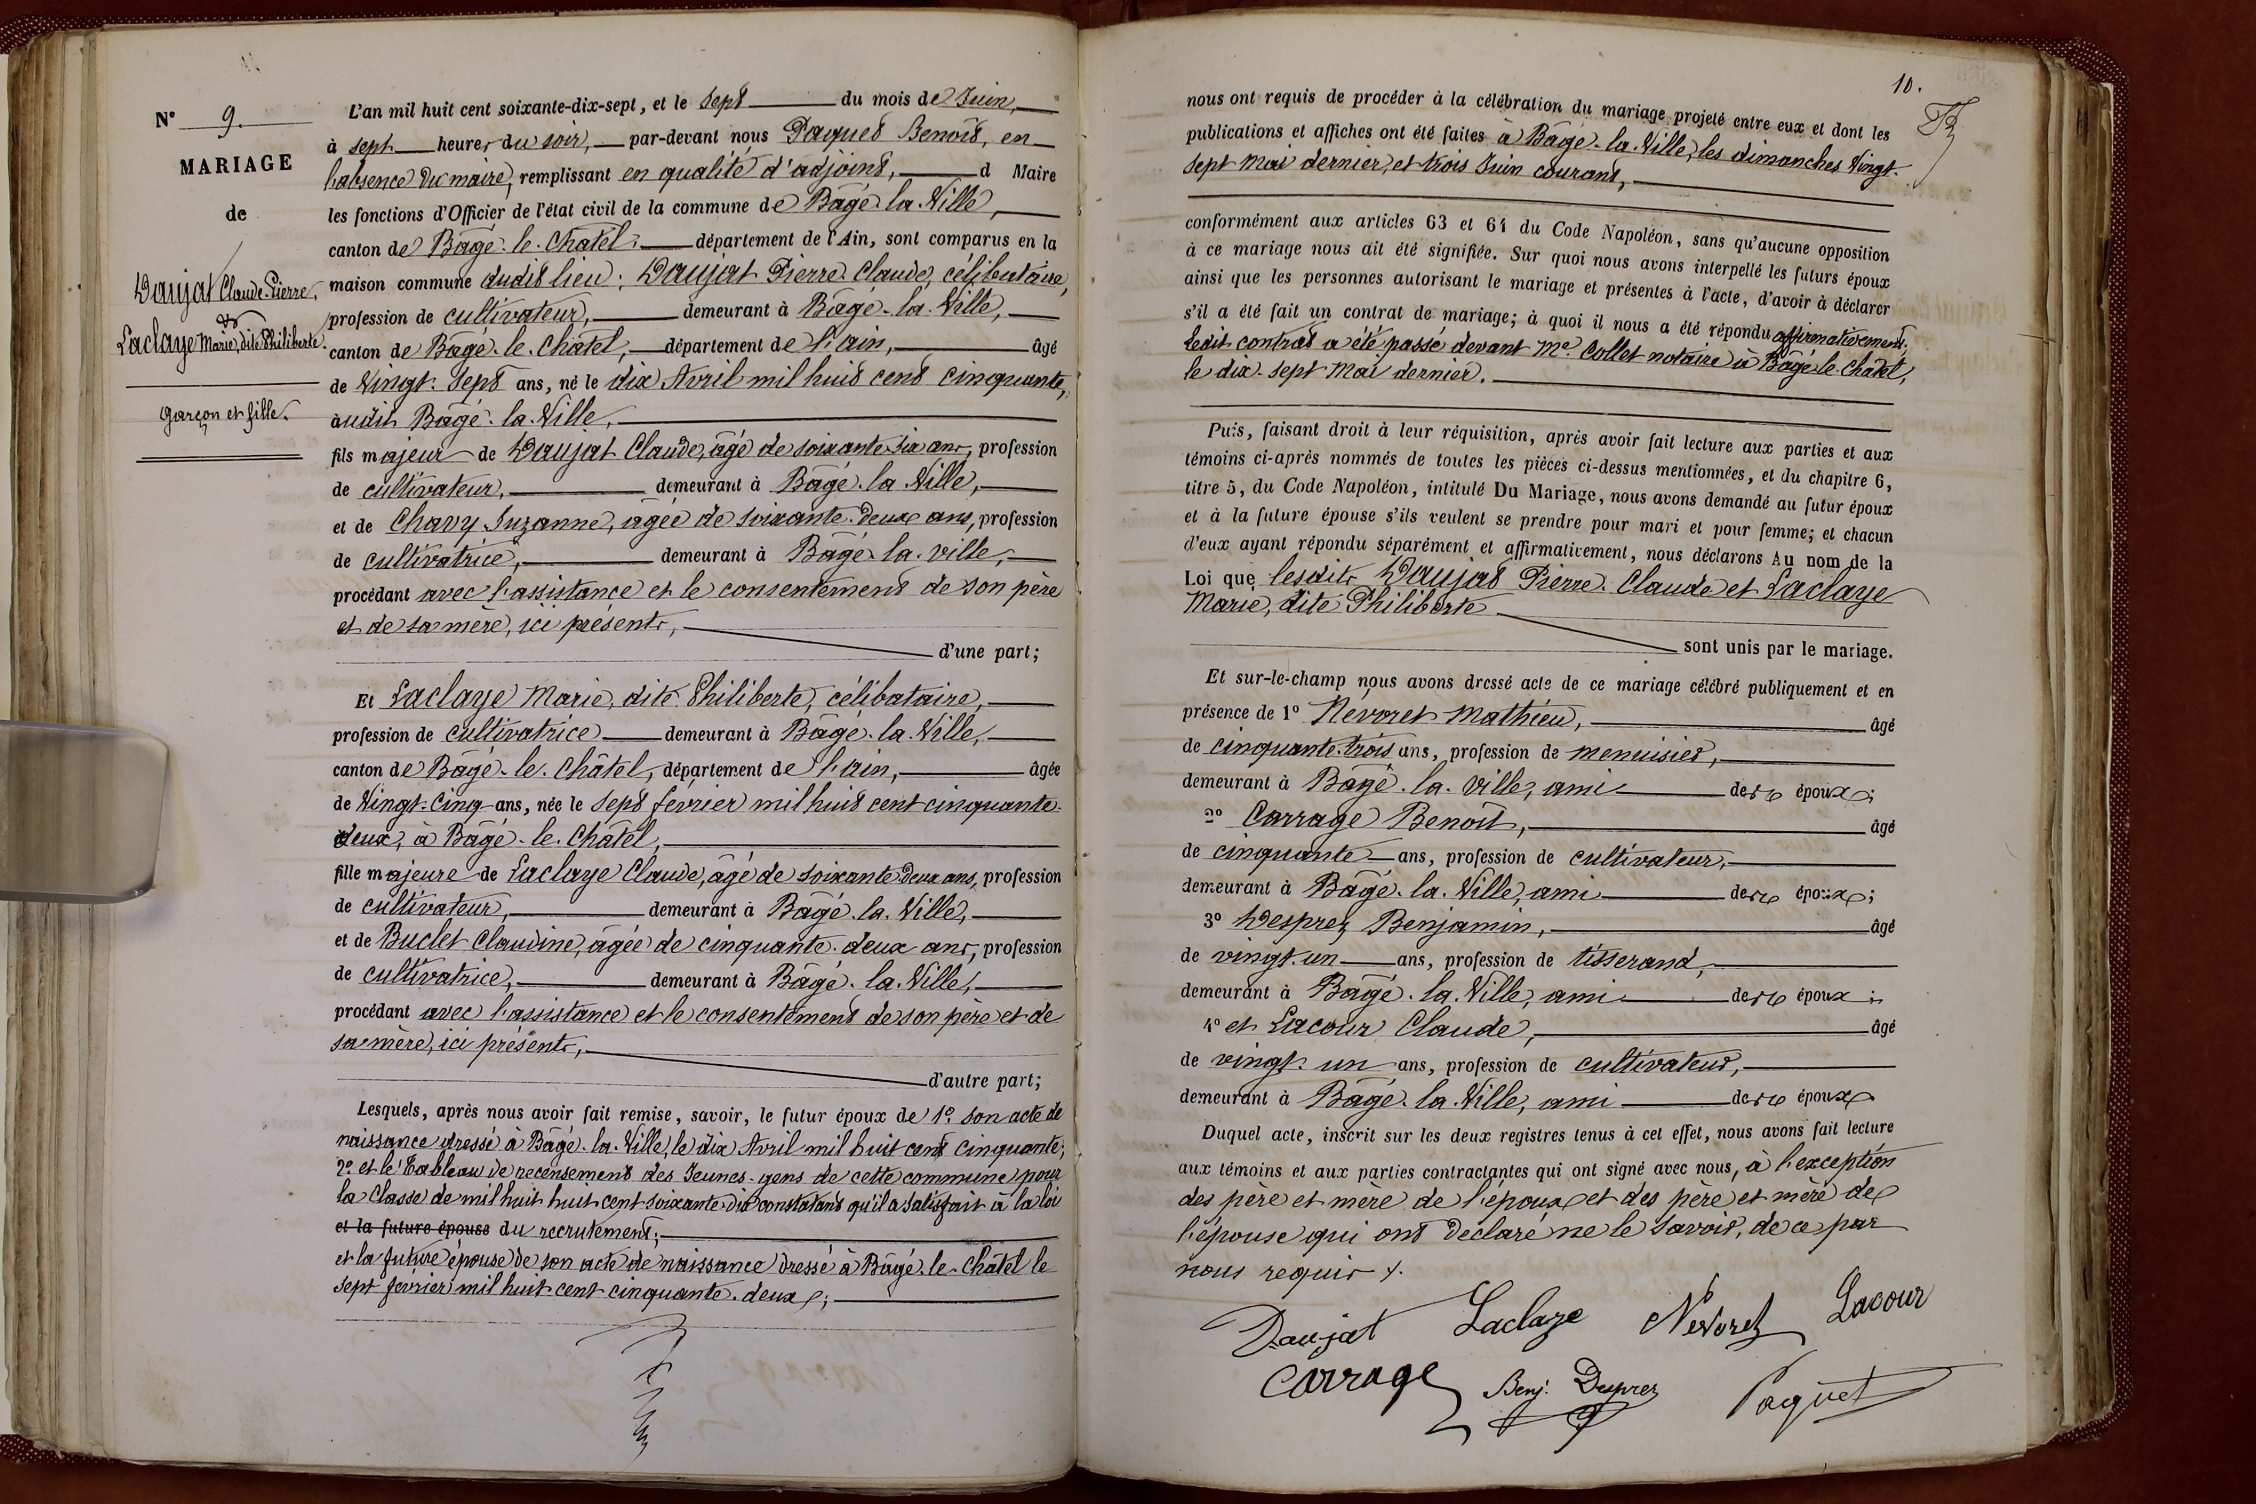 N° 9.
MARIAGE
de
Daujat Claude-Pierre,
&
Laclaye Marie, dite Philiberte.
garçon et fille.
L'an mil huit cent soixante-dix-sept, et le sept du mois de Juin,
à sept heures du soir, par-devant nous Paquet Benoît, en
l'absence du maire, remplissant en qualité d'adjoint, d Maire
les fonctions d'Officier de l'état civil de la commune de Bâgé-la-Ville,
canton de Bâgé-le-Châtel, département de l'Ain, sont comparus en la
maison commune dudit lieu; Daujat Pierre-Claude, célibataire,
profession de cultivateur, demeurant à Bâgé-la-Ville,
canton de Bâgé-le-Châtel, département de l'ain, âgé
de Vingt-Sept ans, né le dix Avril mil huit cent cinquante,
audit Bâgé-la-Ville,
fils majeur de Daujat Claude, âgé de soixante-six ans, profession
de cultivateur, demeurant à Bâgé-la-Ville,
et de Chavy Suzanne, âgée de soixante-deux ans, profession
de cultivatrice, demeurant à Bâgé-la-ville,
procédant avec l'assistance et le consentement de son père
et de sa mère, ici présents,
d'une part;
Et Laclaye Marie, dite Philiberte, célibataire,
profession de cultivatrice demeurant à Bâgé-la-Ville,
canton de Bâgé-le-Châtel, département de l'ain, âgée
de Vingt-Cinq ans, née le sept février mil huit cent cinquante-
deux, à Bâgé-le-Châtel,
fille majeure de Laclaye Claude, âgé de soixante-deux ans, profession
de cultivateur, demeurant à Bâgé-la-Ville,
et de Buclet Claudine, âgée de cinquante-deux ans, profession
de cultivatrice, demeurant à Bâgé-la-Ville,
procédant avec l'assistance et le consentement de son père et de
sa mère, ici présents,
d'autre part;
Lesquels, après nous avoir fait remise, savoir, le futur époux de 1° son acte de
naissance dressé à Bâgé-la-Ville, le dix Avril mil huit cent cinquante;
2° et le Tableau de recensement des Jeunes-gens de cette commune pour
la Classe de mil huit huit cent soixante-dix constatant qu'il a satisfait à la loi
et la future épouse du recrutement;
et la future épouse de son acte de naissance dressé à Bâgé-le-Châtel le
sept février mil huit cent cinquante-deux;
10.
nous ont requis de procéder à la célébration du mariage projeté entre eux et dont les
publications et affiches ont été faites à Bâgé-la-Ville, les dimanches Vingt-
sept mai dernier, et trois Juin courant,
conformément aux articles 63 et 64 du Code Napoléon, sans qu'aucune opposition
à ce mariage nous ait été signifiée. Sur quoi nous avons interpellé les futurs époux
ainsi que les personnes autorisant le mariage et présentes à l'acte, d'avoir à déclarer
s'il a été fait un contrat de mariage; à quoi il nous a été répondu affirmativement.
Ledit contrat a été passé devant Me. Collet notaire à Bâgé-le-Châtel,
le dix-sept Mai dernier.
Puis, faisant droit à leur réquisition, après avoir fait lecture aux parties et aux
témoins ci-après nommés de toutes les pièces ci-dessus mentionnées, et du chapitre 6,
titre 5, du Code Napoléon, intitulé Du Mariage, nous avons demandé au futur époux
et à la future épouse s'ils veulent se prendre pour mari et pour femme; et chacun
d'eux ayant répondu séparément et affirmativement, nous déclarons Au nom de la
Loi que lesdits Daujat Pierre-Claude et Laclaye
Marie, dite Philiberte
sont unis par le mariage.
Et sur-le-champ nous avons dressé acte de ce mariage célébré publiquement et en
présence de 1° Nevoret Mathieu, âgé
de cinquante-trois ans, profession de menuisier,
demeurant à Bâgé-la-Ville, ami des époux;
2° Carrage Benoît, âgé
de cinquante ans, profession de cultivateur,
demeurant à Bâgé-la-Ville, ami des époux;
3° Desprez Benjamin, âgé
de vingt-un ans, profession de tisserand,
demeurant à Bâgé-la-Ville, ami des époux;
4° et Lacour Claude, âgé
de vingt-un ans, profession de cultivateur,
demeurant à Bâgé-la-Ville, ami des époux
Duquel acte, inscrit sur les deux registres tenus à cet effet, nous avons fait lecture
aux témoins et aux parties contractantes qui ont signé avec nous, à l'exception
des père et mère de l'époux et des père et mère de
l'épouse qui ont déclaré ne le savoir, de ce par
nous requis.
Daujat Laclaye Nevoret Lacour
Carrage Benj. Desprez Paquet